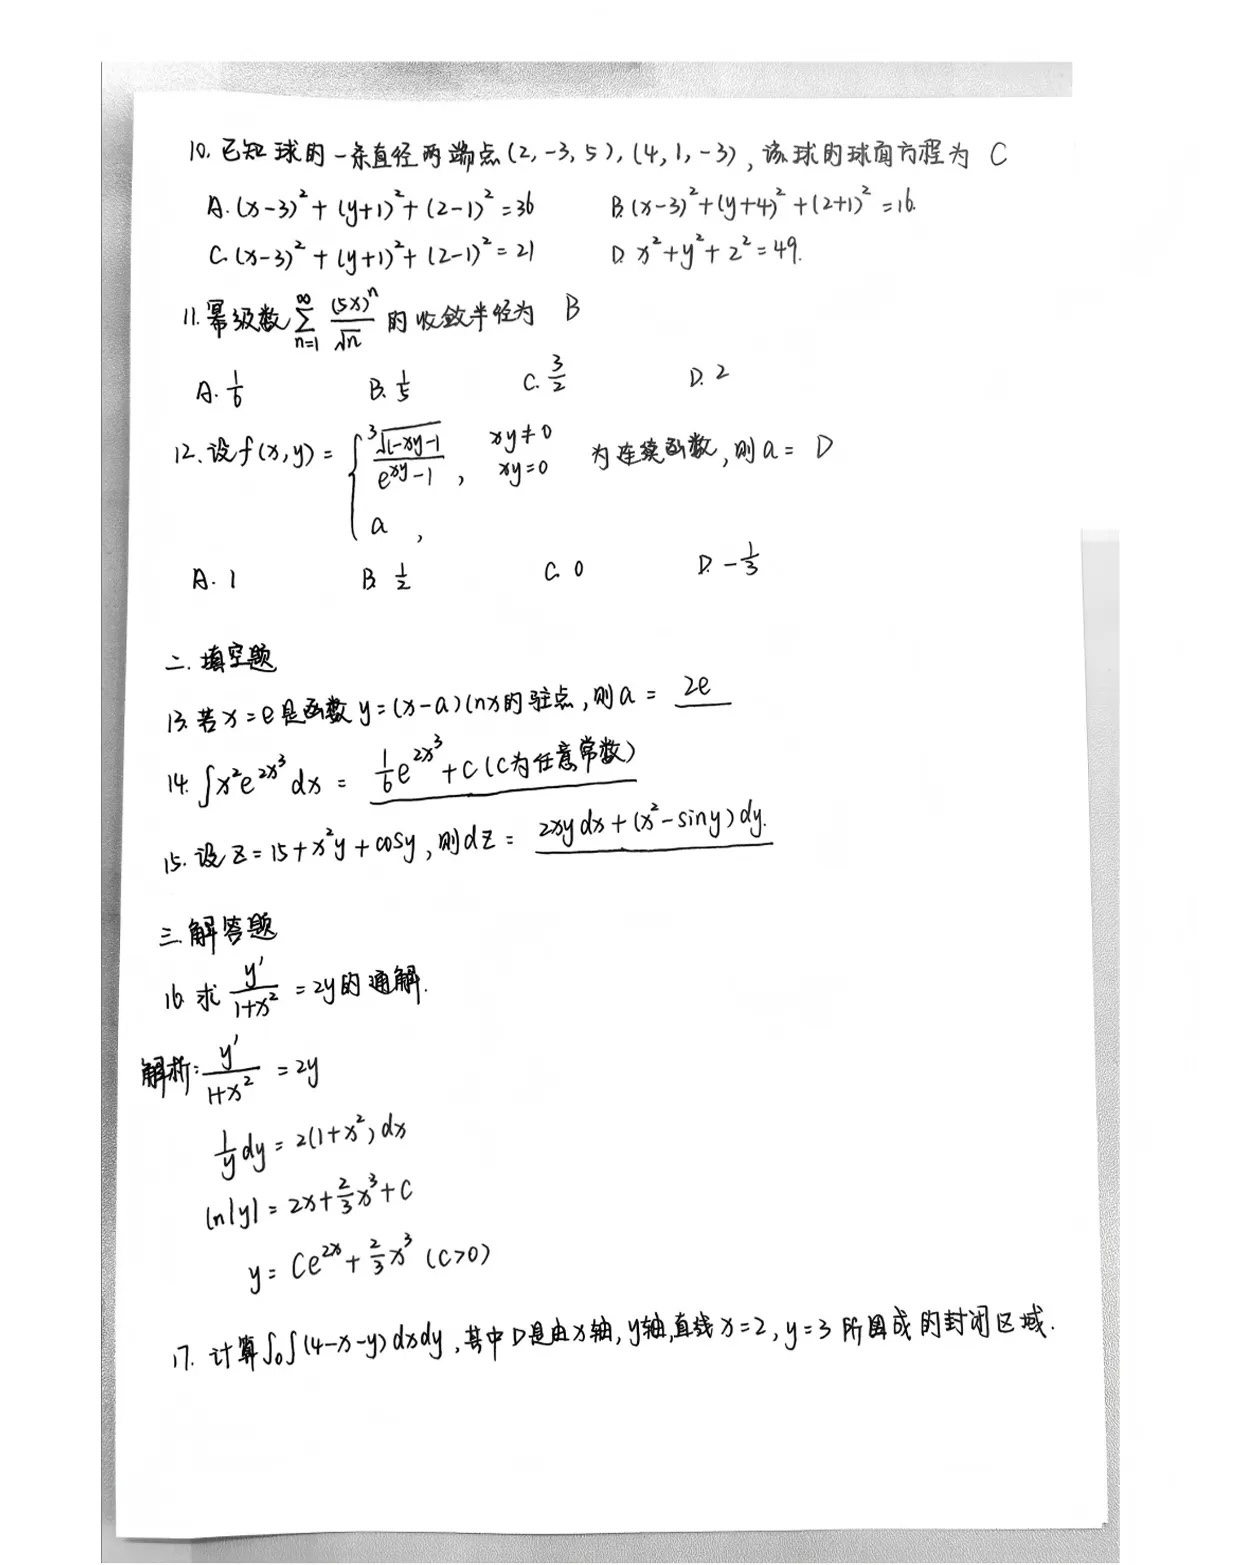 10. 已知球的一条直径两端点(2, -3, 5), (4, 1, -3), 该球的球面方程为 C
A. (x-3)² + (y+1)² + (z-1)² = 36 B. (x-3)² + (y+4)² + (z+1)² = 16.
C. (x-3)² + (y+1)² + (z-1)² = 21 D. x² + y² + z² = 49.
11. 幂级数 ∑_{n=1}^{∞} (5x)ⁿ/√n 的收敛半径为 B
A. 1/6 B. 1/5 C. 3/2 D. 2
12. 设f(x,y) = { (∛(1-xy)-1)/(e^{xy}-1), xy≠0 xy=0 为连续函数, 则a = D
a ,
A. 1 B. 1/2 C. 0 D. -1/3
二. 填空题
13. 若x=e是函数y=(x-a)lnx的驻点, 则a = 2e
14. ∫x²e^{2x³}dx = 1/6 e^{2x³} + C (C为任意常数)
15. 设z=15+x²y+cosy, 则dz = 2xydx+(x²-siny)dy.
三.解答题
16. 求 y'/(1+x²) = 2y的通解.
解析: y'/(1+x²) = 2y
1/y dy = 2(1+x²)dx
ln|y| = 2x + 2/3 x³ + C
y = Ce^{2x} + 2/3 x³ (C>0)
17. 计算∫_D∫(4-x-y)dxdy, 其中D是由x轴, y轴,直线x=2, y=3 所围成的封闭区域.